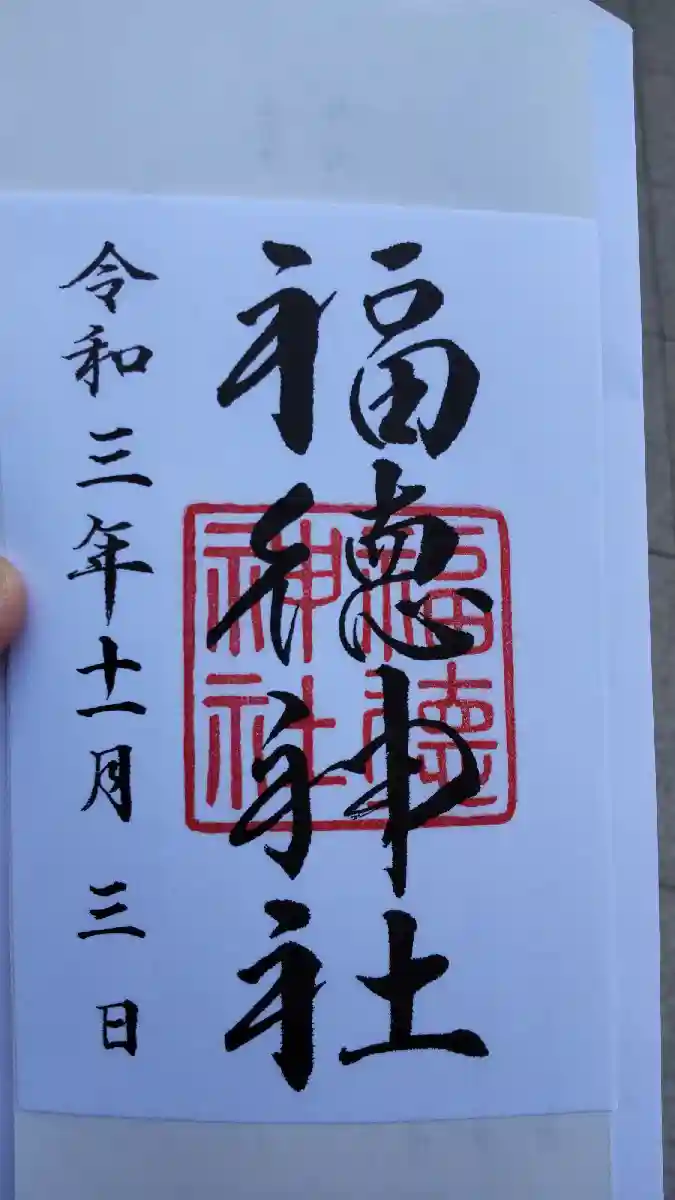 福徳神社
福徳
神社
令和三年十一月三日